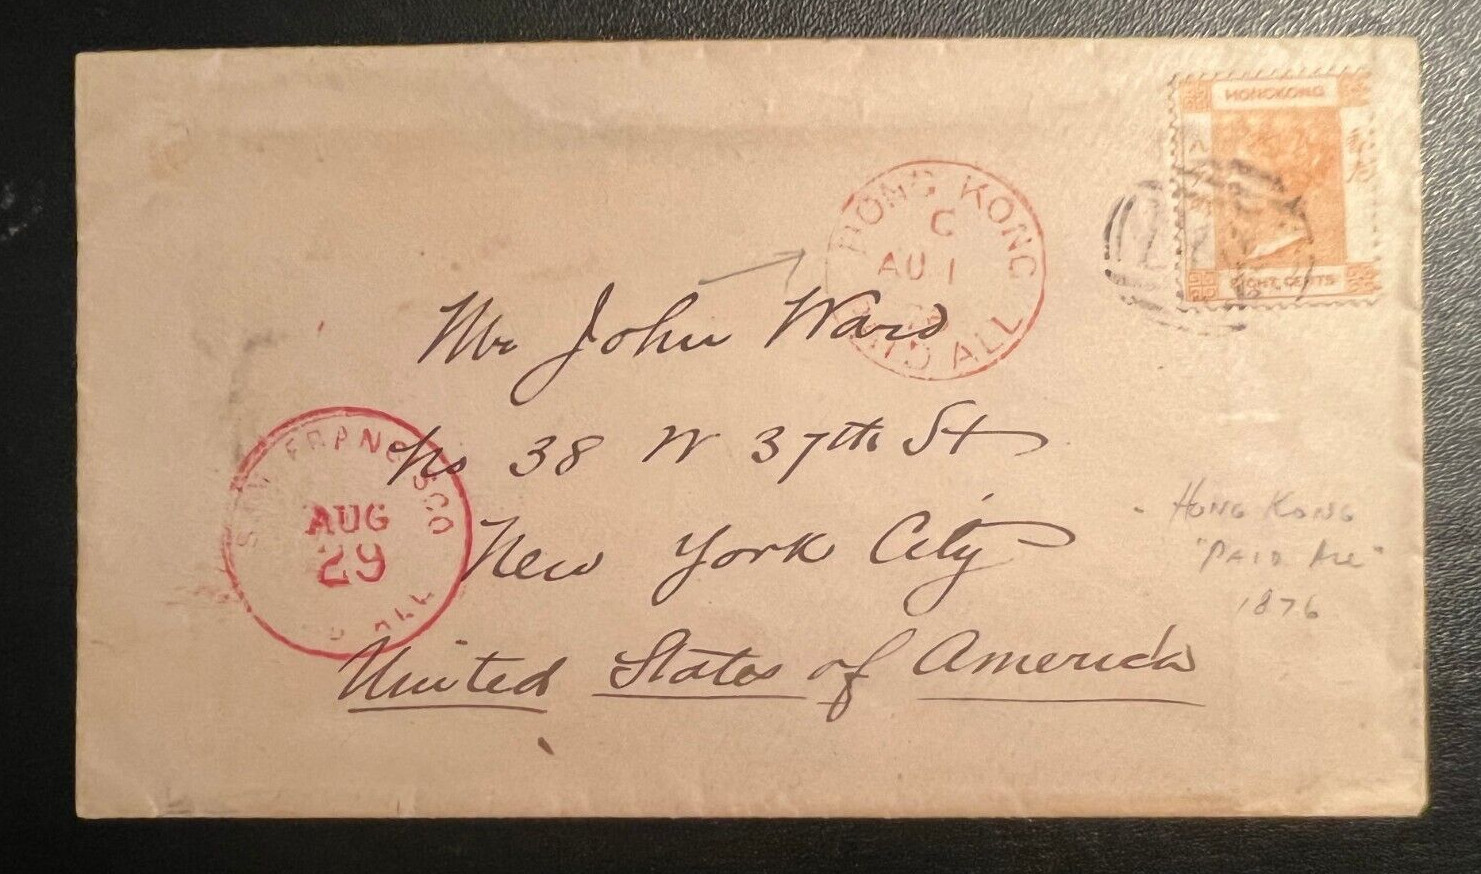 HONGKONG
EIGHT CENTS
HONG KONG
C
AU 1
PAID ALL
Mr John Ward
No 38 W 37th St
New York City
United States of America
SAN FRANCISCO
AUG
29
ALL
Hong Kong
"Paid All"
1876